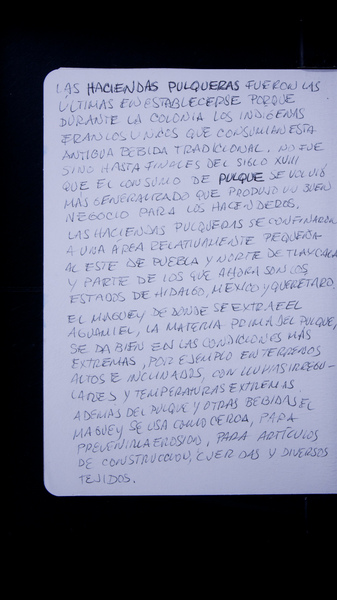 LAS HACIENDAS PULQUERAS FUERON LAS
ÚLTIMAS EN ESTABLECERSE PORQUE
DURANTE LA COLONIA LOS INDÍGENAS
ERAN LOS UNICOS QUE CONSUMIAN ESTA
ANTIGUA BEBIDA TRADICIONAL. NO FUE
SINO HASTA FINALES DEL SIGLO XVIII
QUE EL CONSUMO DE PULQUE SE VOLVIÓ
MÁS GENERALIZADO QUE PRODUJO UN BUEN
NEGOCIO PARA LOS HACENDEROS.
LAS HACIENDAS PULQUERAS SE CONFINARON
A UNA ÁREA RELATIVAMENTE PEQUEÑA
AL ESTE DE PUEBLA Y NORTE DE TLAXCALA
Y PARTE DE LOS QUE AHORA SON LOS
ESTADOS DE HIDALGO, MEXICO Y QUERETARO.
EL MAGUEY DE DONDE SE EXTRAE EL
AGUAMIEL, LA MATERIA PRIMA DEL PULQUE,
SE DA BIEN EN LAS CONDICIONES MÁS
EXTREMAS, POR EJEMPLO EN TERRENOS
ALTOS E INCLINADOS, CON LLUVIAS IRREGU-
LARES Y TEMPERATURAS EXTREMAS.
ADEMÁS DEL PULQUE Y OTRAS BEBIDAS EL
MAGUEY SE USA COMO CERCA, PARA
PREVENIR LA EROSIÓN, PARA ARTÍCULOS
DE CONSTRUCCIÓN, CUERDAS Y DIVERSOS
TEJIDOS.